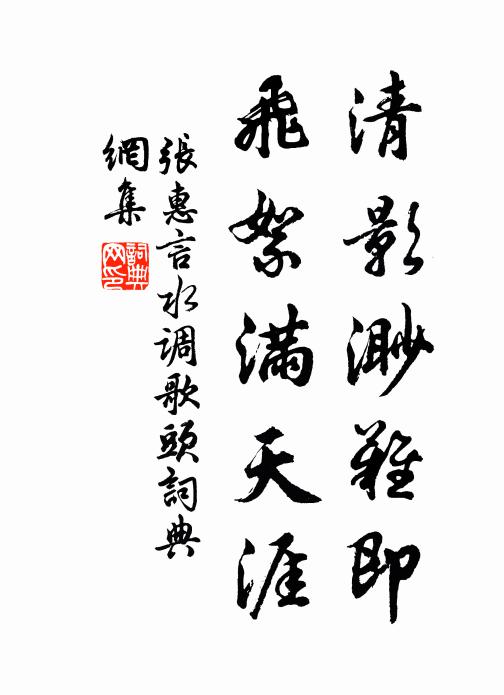 清影渺難即
飛絮滿天涯
張惠言水调歌頭詞典
網集
詞典
网印